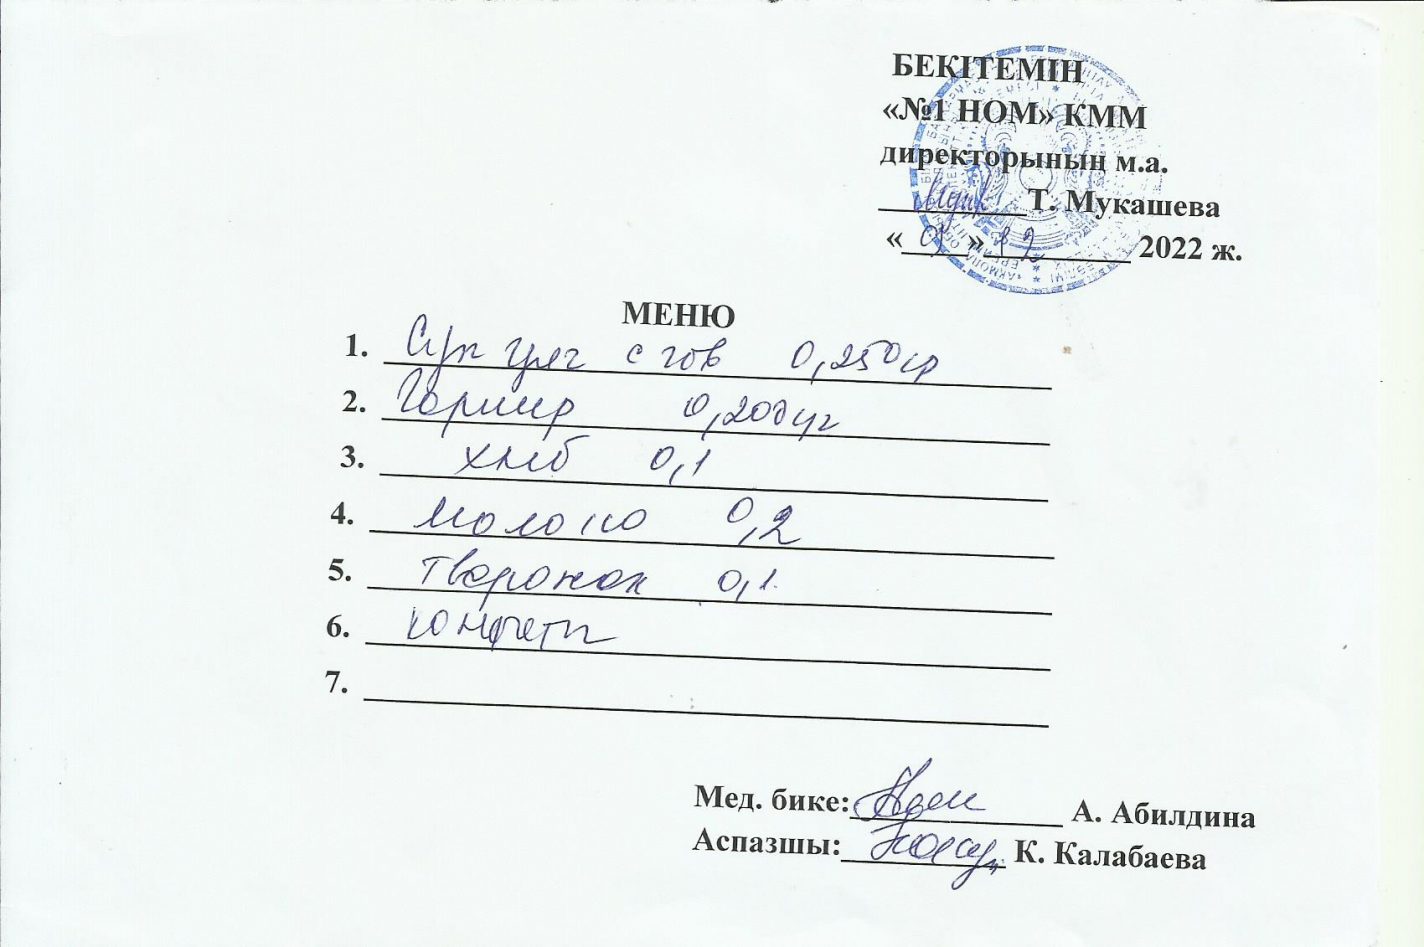 БЕКІТЕМІН
«№1 НОМ» КММ
директорының м.а.
Т. Мукашева
« » 12 2022 ж.
МЕНЮ
1. Суп с гов 0,250гр
2. Гарнир 0,200
3. хлеб 0,1
4. молоко 0,2
5. творожок 0,1
6. конфеты
7.
Мед. бике: А. Абилдина
Аспазшы: К. Калабаева